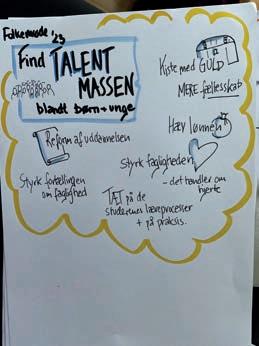 Folkemøde '23
Find TALENT
MASSEN
blandt børn + unge
Kiste med GULD
MERE fællesskab
Hæv lønnen
Reform af uddannelsen
Styrk fagligheden
- det handler om
hjerte
Styrk fortællingen
om faglighed
TÆT på de
studerendes læreprocesser
+ på praksis.